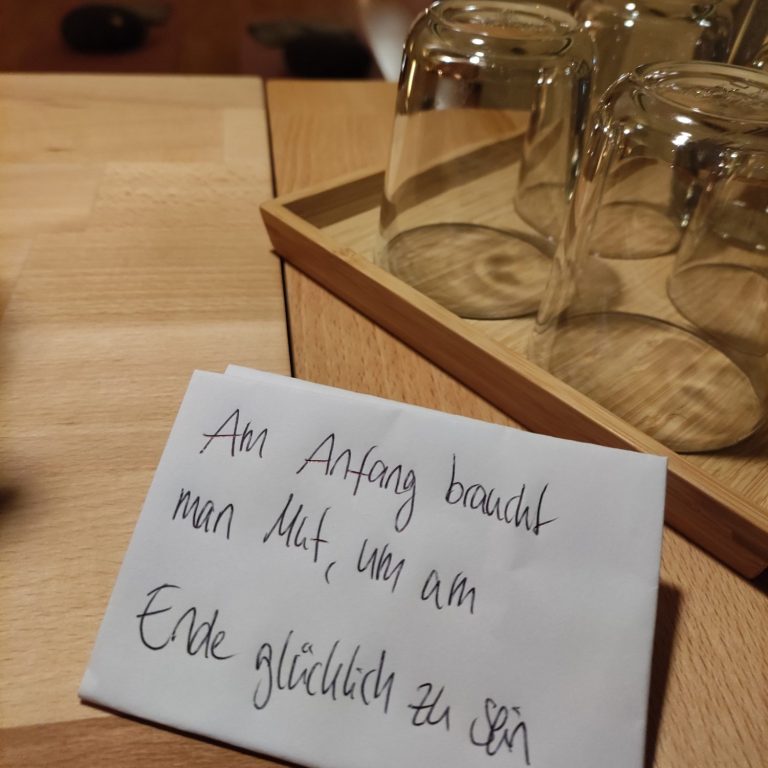 Am Anfang braucht
man Mut, um am
Ende glücklich zu sein